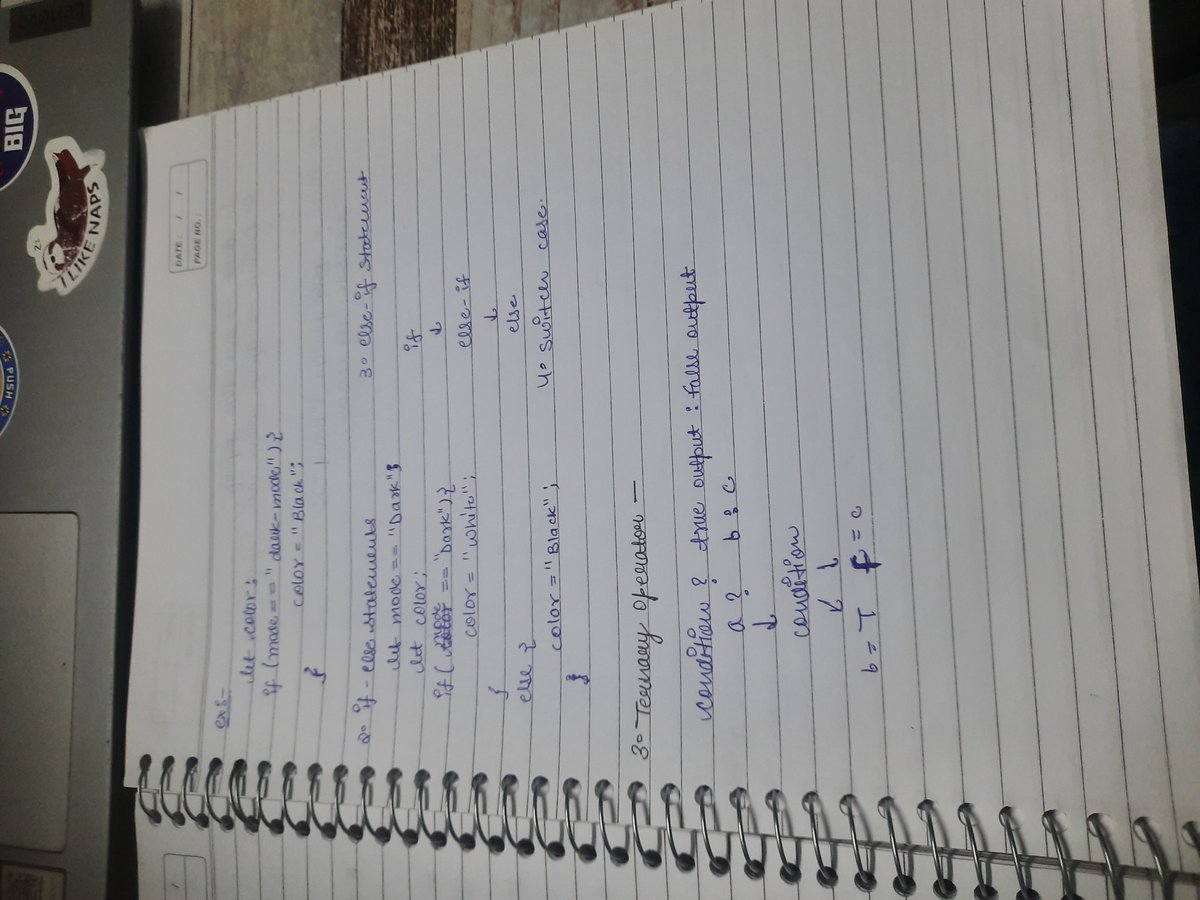 DATE: / /
PAGE NO.:
ex:-
let color;
if (mode == "dark-mode") {
color = "Black";
}
2. if-else statements
let mode == "Dark";
let color;
if (mode == "Dark") {
color = "white";
}
else {
color = "Black";
}
3. else-if statement
if
↓
else-if
↓
else
4. switch case.
3. Ternary operator -
condition ? true output : false output
a ? b : c
↓
condition
↙ ↓
b = T F = c
BIG
I LIKE NAPS
PUSH
lenovo